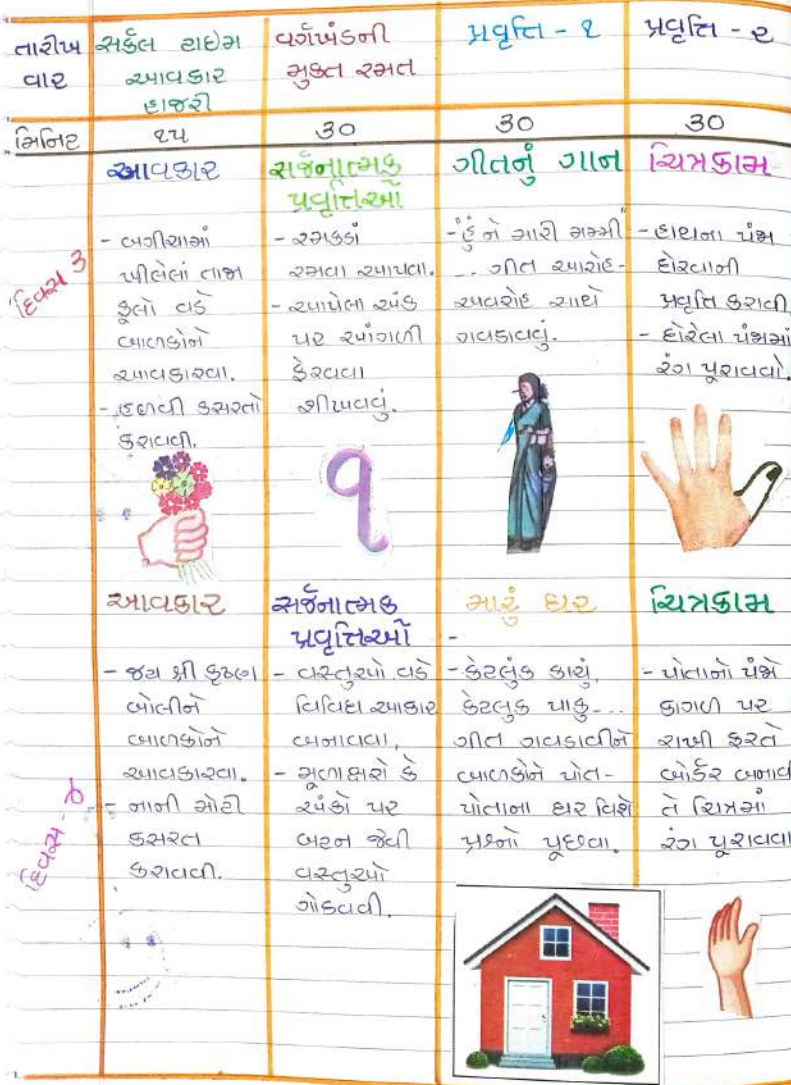 તારીખ
વાર
સર્કલ ટાઇમ
આવકાર
હાજરી
વર્ગખંડની
મુક્ત રમત
પ્રવૃત્તિ - ૧
પ્રવૃત્તિ - ૨
મિનિટ
૧૫
૩૦
૩૦
૩૦
દિવસ ૩
આવકાર
- બગીચામાં
ખીલેલાં તાજા
ફૂલો વડે
બાળકોને
આવકારવા.
- હળવી કસરતો
કરાવવી.
સર્જનાત્મક
પ્રવૃત્તિઓ
- રમકડાં
રમવા આપવા.
- આપેલા અંક
પર આંગળી
ફેરવવા
શીખવવું.
૧
ગીતનું ગાન
- "હું ને મારી મમ્મી"
... ગીત આરોહ-
અવરોહ સાથે
ગવડાવવું.
ચિત્રકામ
- હાથના પંજા
દોરવાની
પ્રવૃત્તિ કરાવી
- દોરેલા પંજામાં
રંગ પૂરાવવો.
દિવસ - ૪
આવકાર
- જય શ્રી કૃષ્ણ
બોલીને
બાળકોને
આવકારવા.
- નાની મોટી
કસરત
કરાવવી.
સર્જનાત્મક
પ્રવૃત્તિઓ
- વસ્તુઓ વડે
વિવિધ આકાર
બનાવવા,
- મૂળાક્ષરો કે
અંકો પર
બટન જેવી
વસ્તુઓ
ગોઠવવી.
મારું ઘર
-
- કેટલુંક કાચું,
કેટલુક પાકુ...
ગીત ગવડાવીને
બાળકોને પોત-
પોતાના ઘર વિશે
પ્રશ્નો પૂછવા.
ચિત્રકામ
- પોતાનો પંજો
કાગળ પર
રાખી ફરતે
બોર્ડર બનાવી
તે ચિત્રમાં
રંગ પૂરાવવા